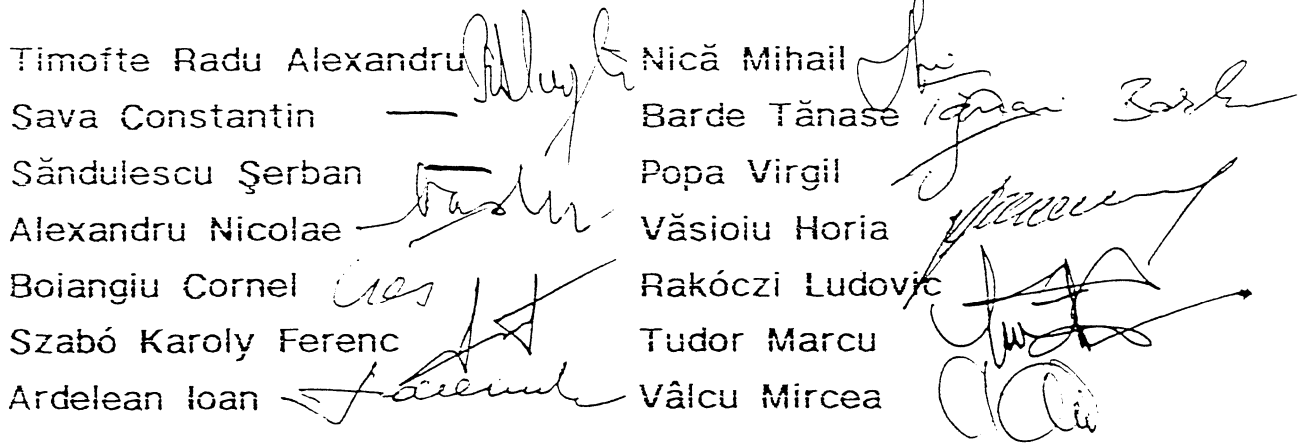 Timofte Radu Alexandru
Sava Constantin —
Săndulescu Şerban —
Alexandru Nicolae
Boiangiu Cornel
Szabó Karoly Ferenc
Ardelean Ioan
Nică Mihail
Barde Tănase
Popa Virgil
Văsioiu Horia
Rakóczi Ludovic
Tudor Marcu
Vâlcu Mircea